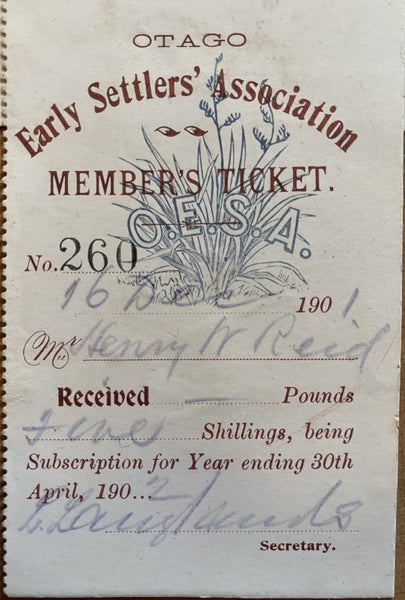 OTAGO
Early Settlers' Association
MEMBER'S TICKET.
O.E.S.A.
No. 260
16 Dec 1901
Mr Henry W Reid
Received — Pounds
Five Shillings, being
Subscription for Year ending 30th
April, 190...2
Langlands
Secretary.